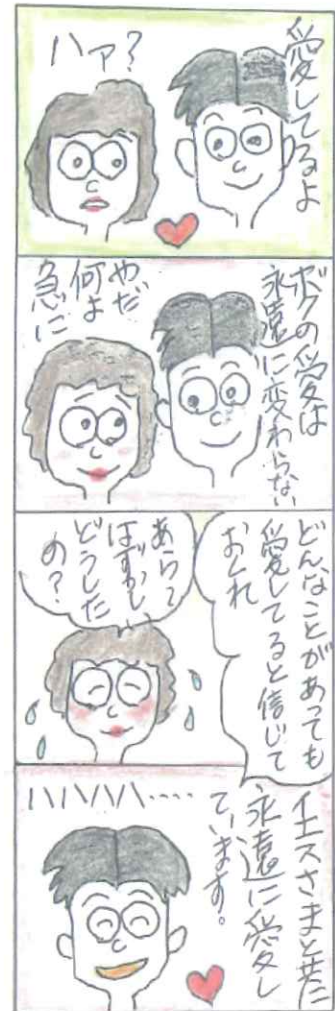 愛してるよ
ハァ?
ボクの愛は
永遠に変わらない
やだ
何よ
急に
どんなことがあっても
愛してると信じて
おくれ
あら〜
はずかし
どうした
の?
イエスさまと共に
永遠に愛し
ています。
ハハハハ・・・・・